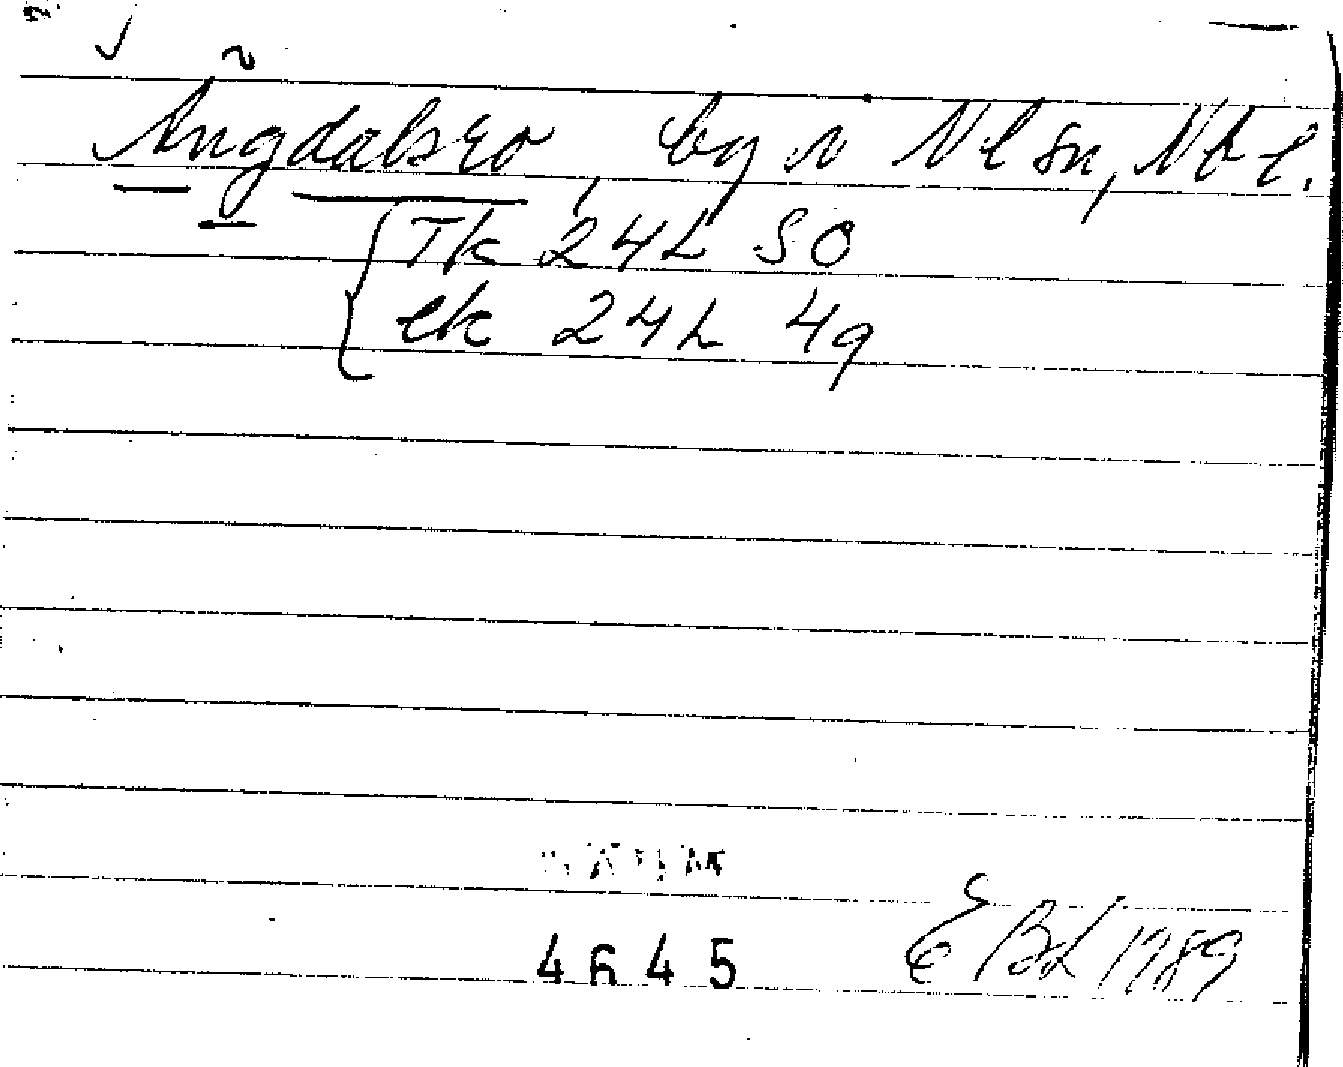 Ängdalsro, by i Nl sn, Nbl.
Tk 24L SO
ek 24L 4g
4645
E Bd 1989